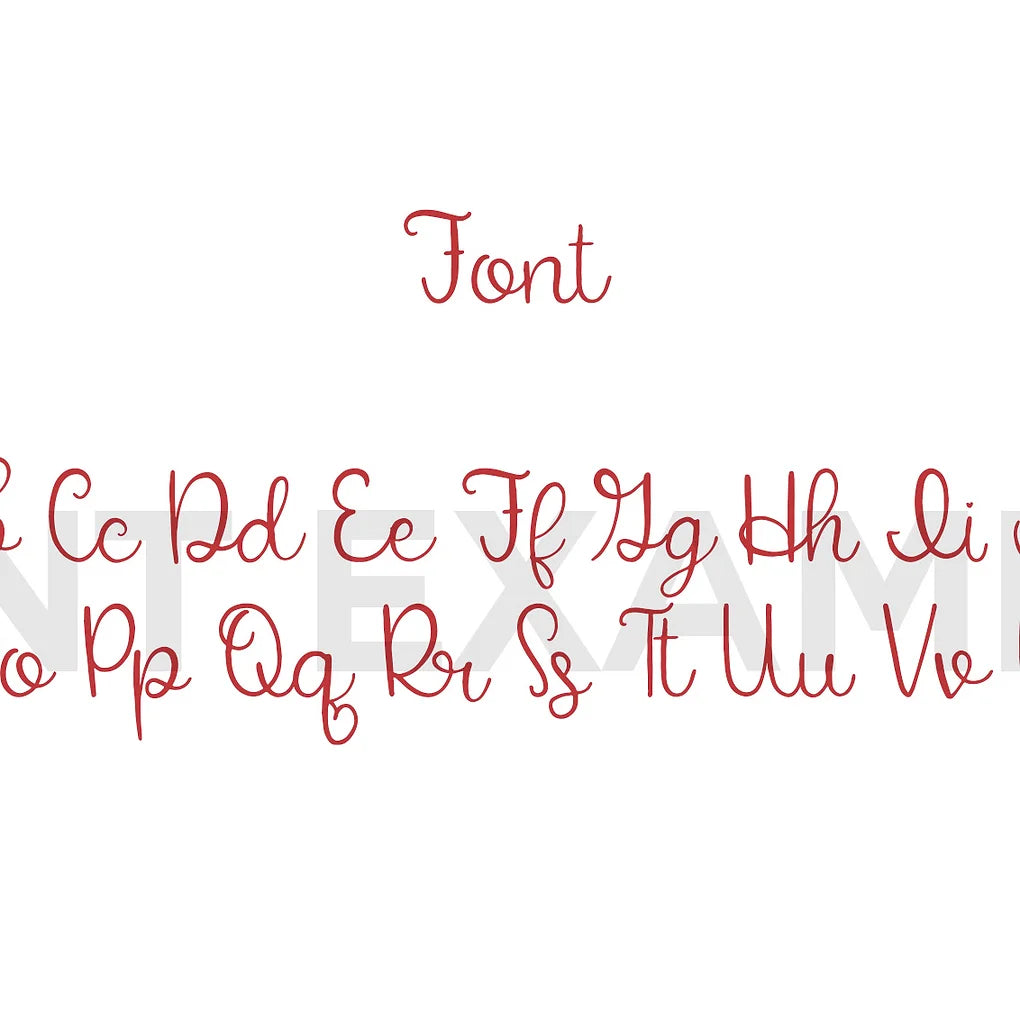 Font
Cc Dd Ee Ff Gg Hh Ii
o Pp Qq Rr Ss Tt Uu Vv